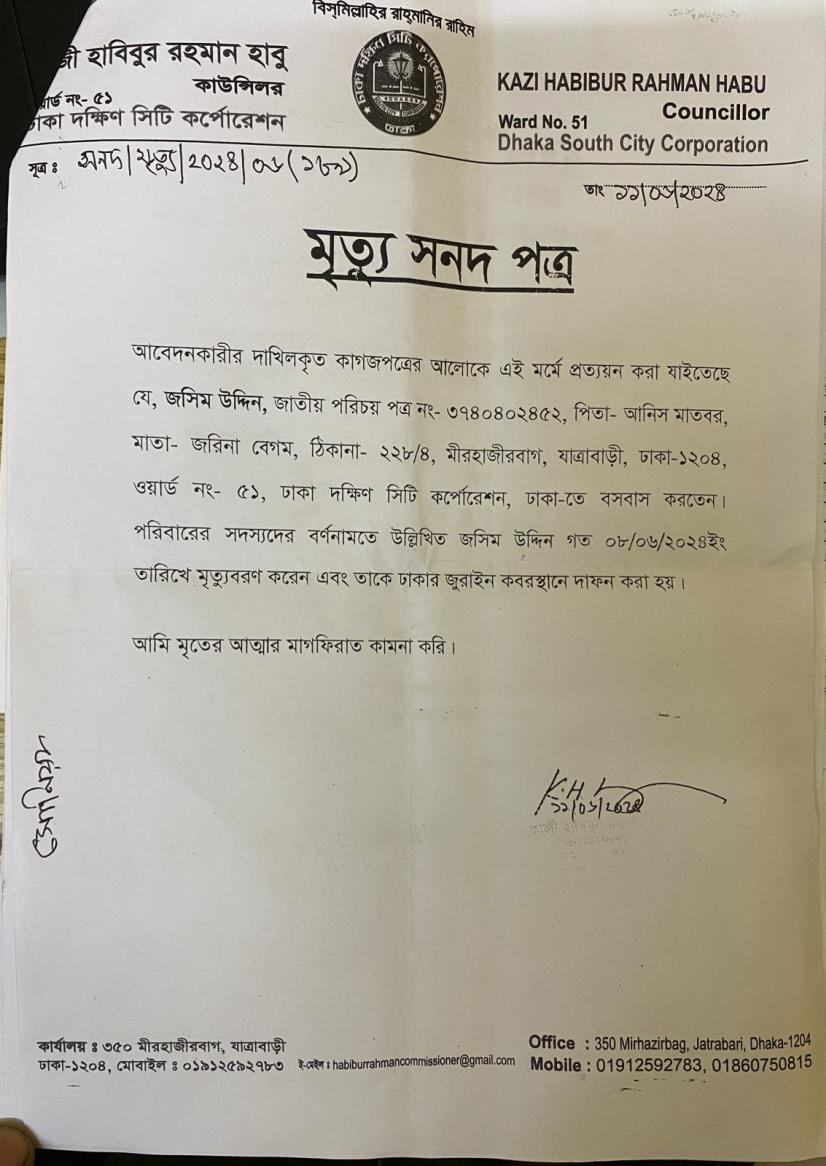 বিস্‌মিল্লাহির রাহ্‌মানির রাহিম
জী হাবিবুর রহমান হাবু
কাউন্সিলর
ওয়ার্ড নং- ৫১
ঢাকা দক্ষিণ সিটি কর্পোরেশন
ঢাকা দক্ষিণ সিটি কর্পোরেশন
ঢাকা
KAZI HABIBUR RAHMAN HABU
Councillor
Ward No. 51
Dhaka South City Corporation
সূত্র ঃ সনদ/মৃত্যু/২০২৪/০৬
তাং ১১/০৬/২০২৪
মৃত্যু সনদ পত্র
আবেদনকারীর দাখিলকৃত কাগজপত্রের আলোকে এই মর্মে প্রত্যয়ন করা যাইতেছে
যে, জসিম উদ্দিন, জাতীয় পরিচয় পত্র নং- ৩৭৪০৪০২৪৫২, পিতা- আনিস মাতবর,
মাতা- জরিনা বেগম, ঠিকানা- ২২৮/৪, মীরহাজীরবাগ, যাত্রাবাড়ী, ঢাকা-১২০৪,
ওয়ার্ড নং- ৫১, ঢাকা দক্ষিণ সিটি কর্পোরেশন, ঢাকা-তে বসবাস করতেন।
পরিবারের সদস্যদের বর্ণনামতে উল্লিখিত জসিম উদ্দিন গত ০৮/০৬/২০২৪ইং
তারিখে মৃত্যুবরণ করেন এবং তাকে ঢাকার জুরাইন কবরস্থানে দাফন করা হয়।
আমি মৃতের আত্মার মাগফিরাত কামনা করি।
K.H.
১১/০৬/২০২৪
কার্যালয় ঃ ৩৫০ মীরহাজীরবাগ, যাত্রাবাড়ী
ঢাকা-১২০৪, মোবাইল ঃ ০১৯১২৫৯২৭৮৩
ই-মেইল : habiburrahmancommissioner@gmail.com
Office : 350 Mirhazirbag, Jatrabari, Dhaka-1204
Mobile : 01912592783, 01860750815